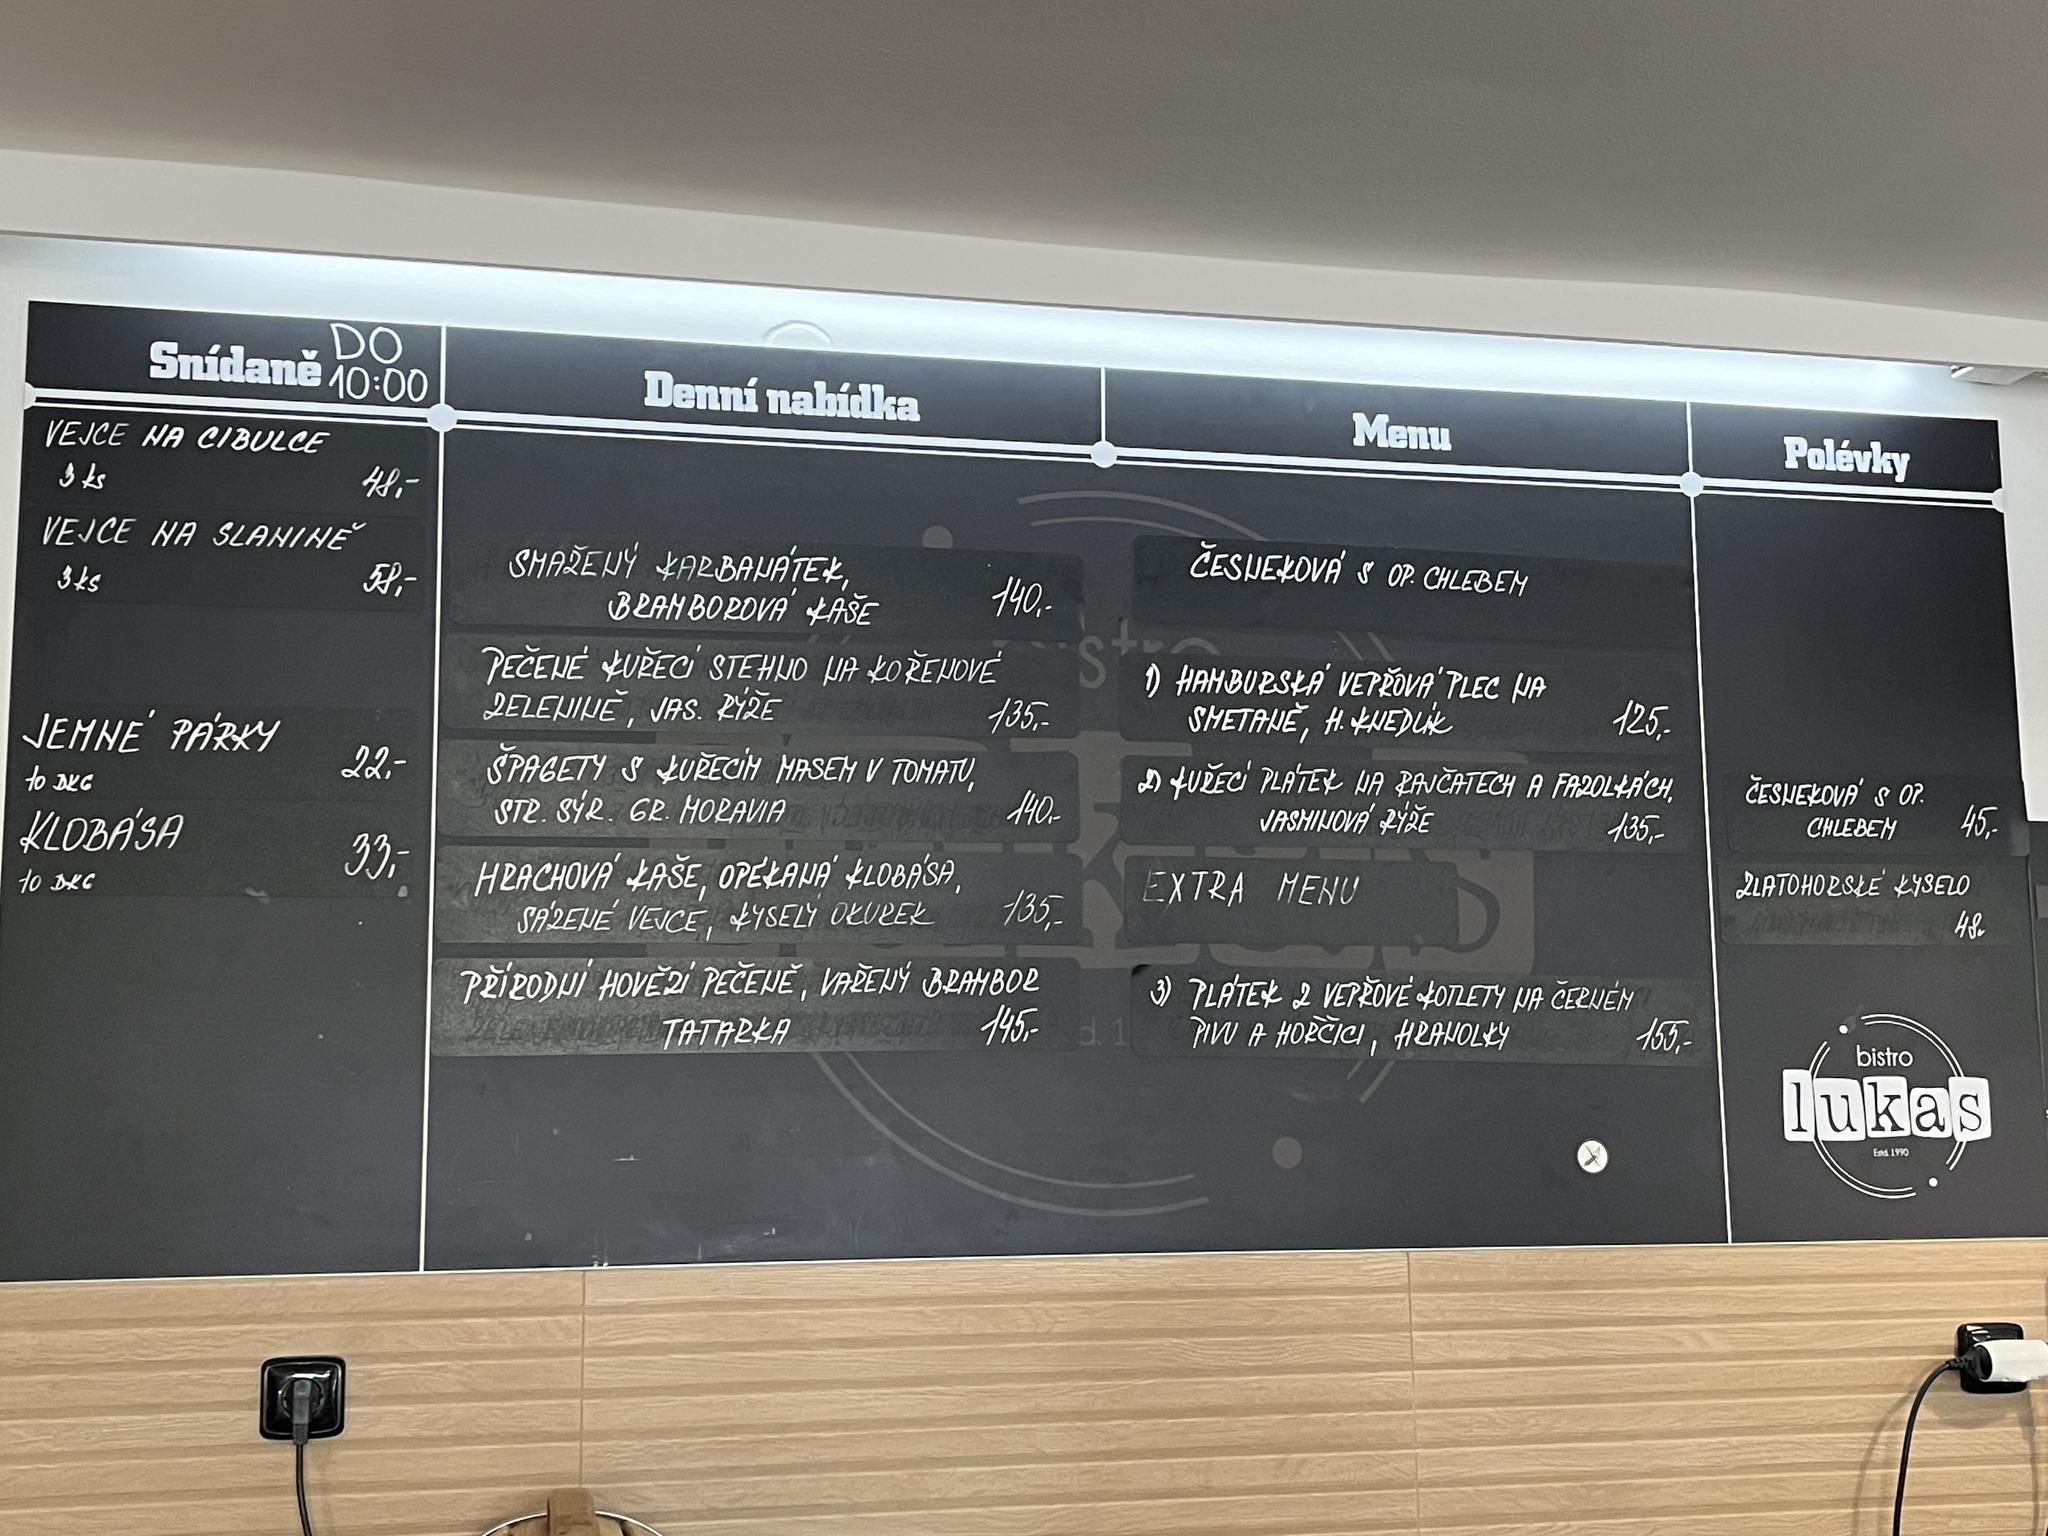 Snídaně DO 10:00
VEJCE NA CIBULCE
3 ks 48,-
VEJCE NA SLANINĚ
3 ks 58,-
JEMNÉ PÁRKY
10 DKG 22,-
KLOBÁSA
10 DKG 33,-
Denní nabídka
SMAŽENÝ KARBANÁTEK,
BRAMBOROVÁ KAŠE 140,-
PEČENÉ KUŘECÍ STEHNO NA KOŘENOVÉ
ZELENINĚ, JAS. RÝŽE 135,-
ŠPAGETY S KUŘECÍM MASEM V TOMATU,
STR. SÝR. GR. MORAVIA 140,-
HRACHOVÁ KAŠE, OPÉKANÁ KLOBÁSA,
SÁZENÉ VEJCE, KYSELÝ OKUREK 135,-
PŘÍRODNÍ HOVĚZÍ PEČENĚ, VAŘENÝ BRAMBOR
TATARKA 145,-
Menu
ČESNEKOVÁ S OP. CHLEBEM
1) HAMBURSKÁ VEPŘOVÁ PLEC NA
SMETANĚ, H. KNEDLÍK 125,-
2) KUŘECÍ PLÁTEK NA RAJČATECH A FAZOLKÁCH,
JASMINOVÁ RÝŽE 135,-
EXTRA MENU
3) PLÁTEK Z VEPŘOVÉ KOTLETY NA ČERNÉM
PIVU A HOŘČICI, HRANOLKY 155,-
Polévky
ČESNEKOVÁ S OP.
CHLEBEM 45,-
ZLATOHORSKÉ KYSELO
48,-
bistro
lukas
Estd. 1990